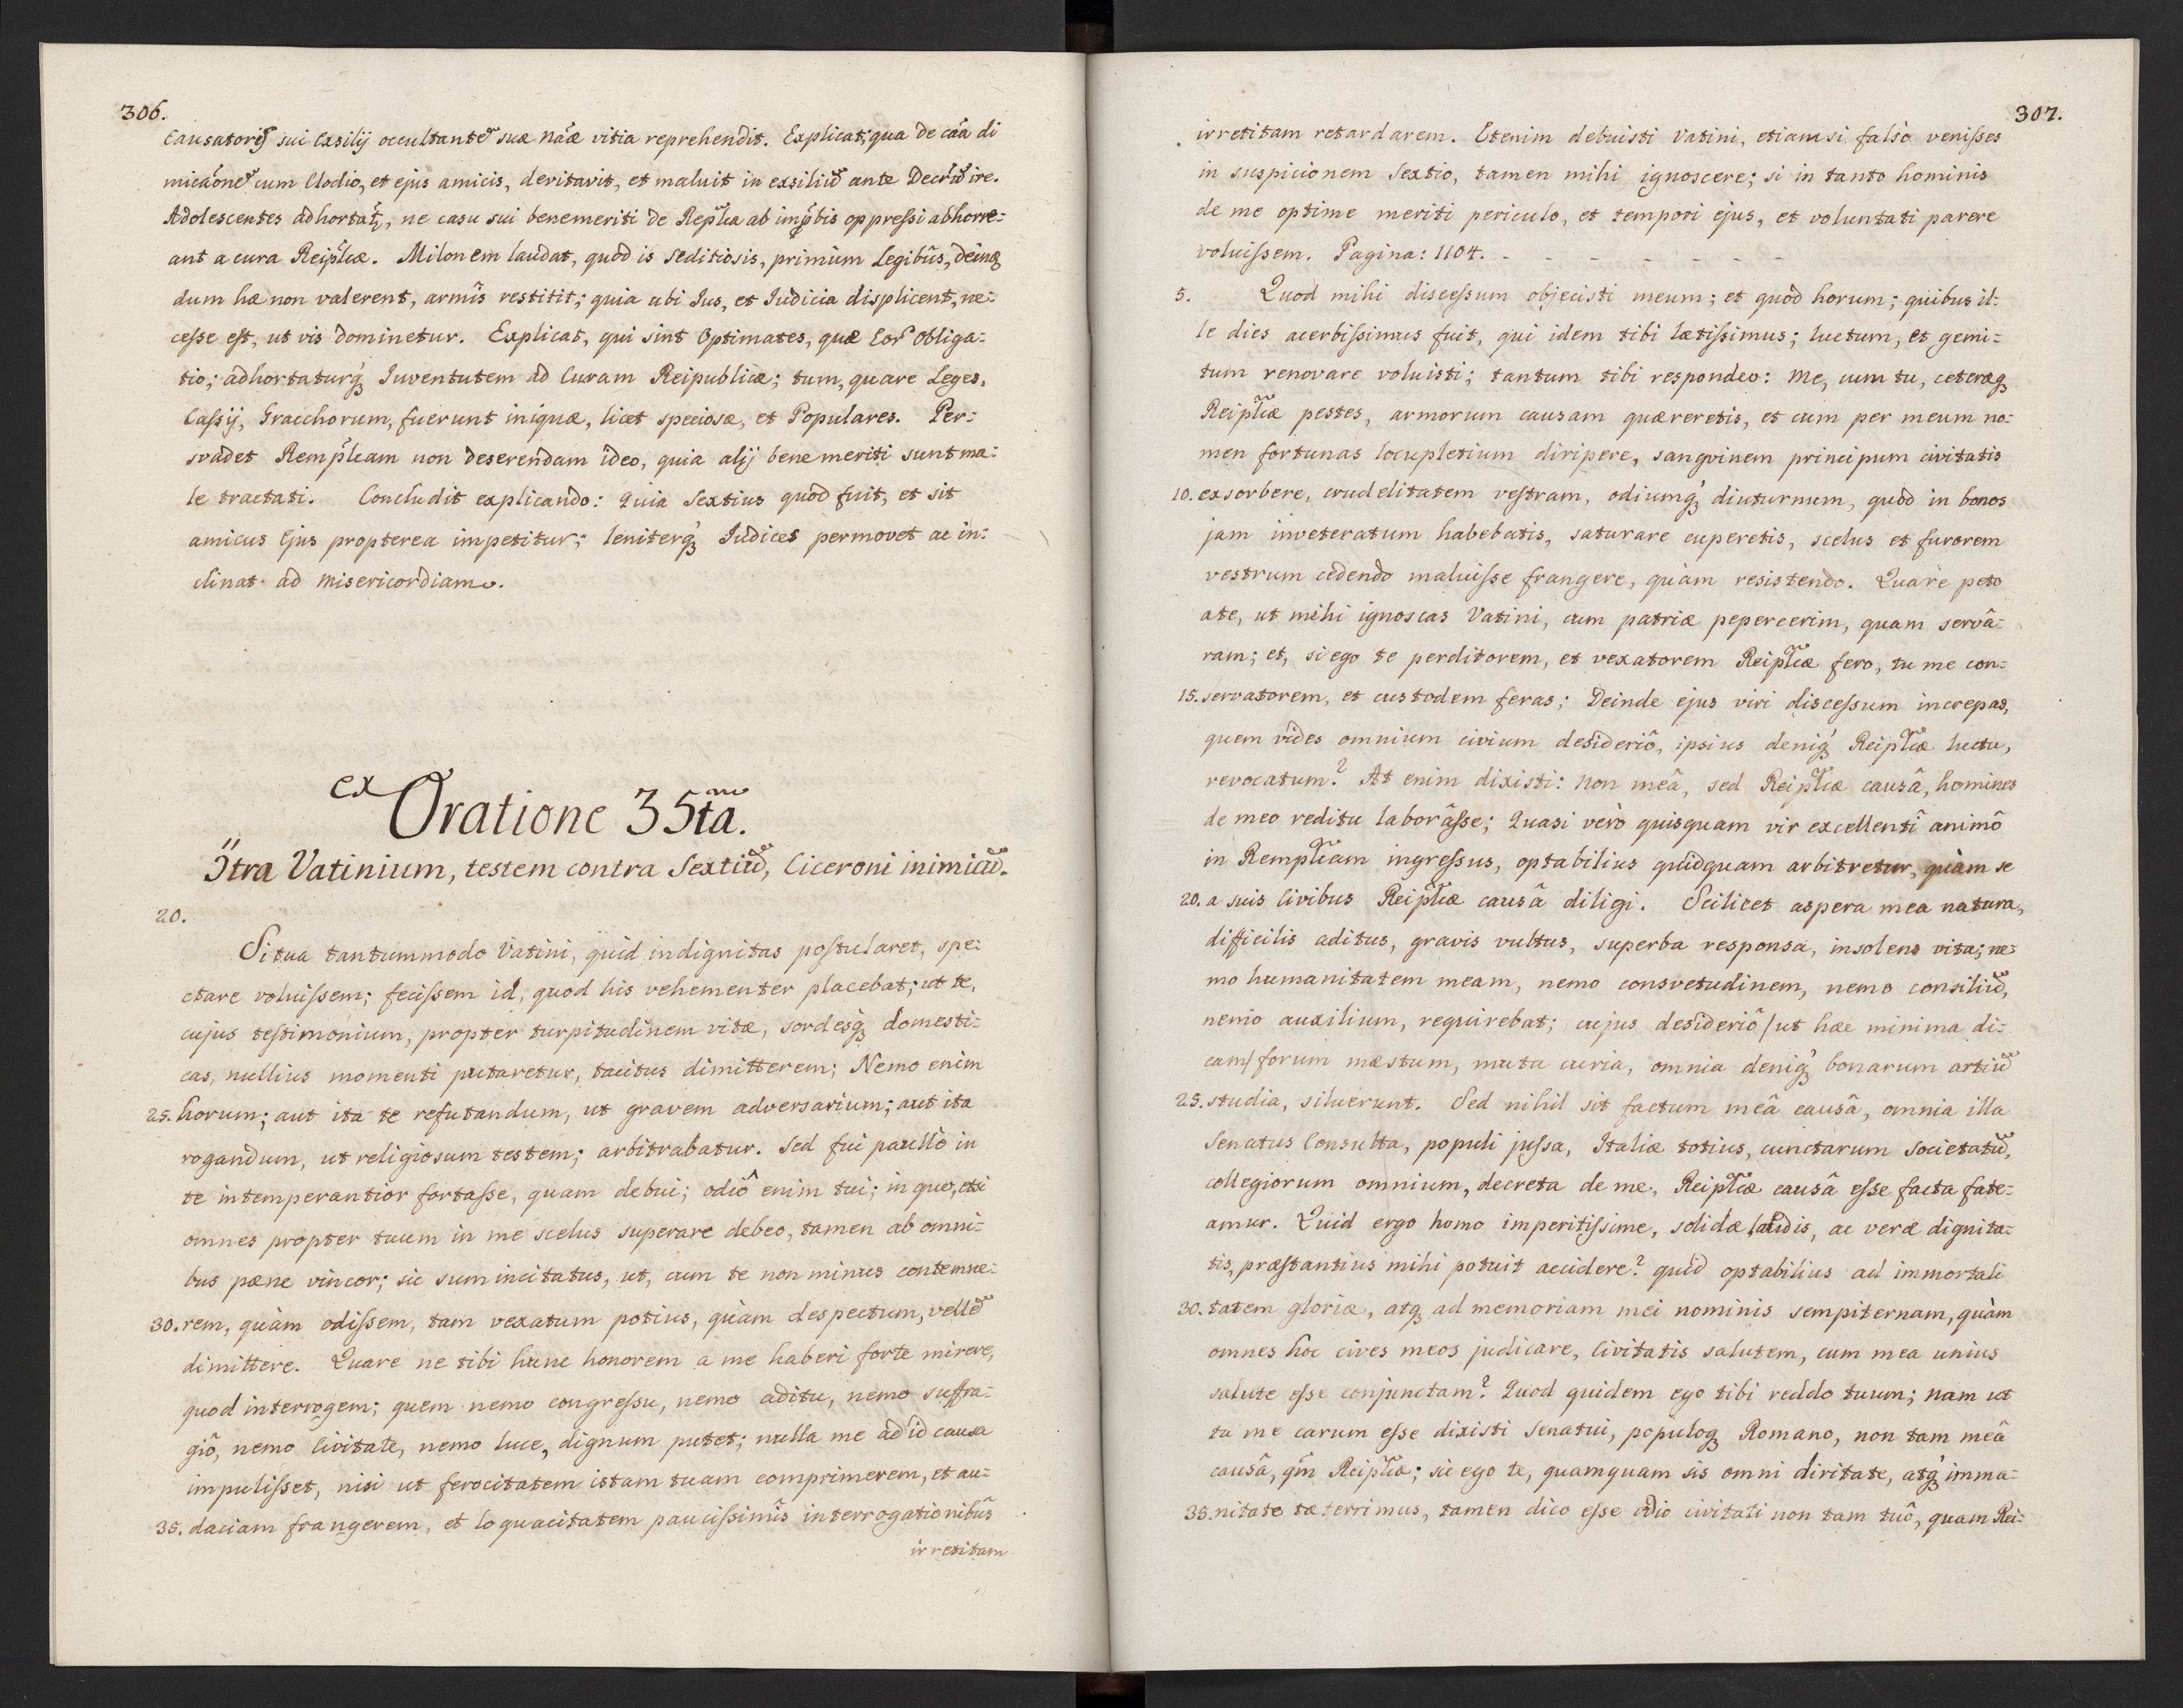 306.
Causatoris sui Exsilij occultante suæ náæ vitia reprehendit. Explicat, qua de cãa di
micáone cum Clodio, et ejus amicis, devitavit, et maluit in exsiliũ ante Decrũ ire.
Adolescentes adhortat, ne casu sui benemeriti de Replca ab impbis oppreſsi abhorre:
ant a cura Reiplcæ. Milonem laudat, quòd is seditiosis, primùm Legibûs, deinq
dum hæ non valerent, armîs restitit; quia ubi Jus, et Judicia displicent, ne:
ceſse eſt, ut vis dominetur. Explicat, qui sint Optimates, quæ Eor Obliga:
tio; adhortaturq́ Juventutem ad Curam Reipublicæ; tum, quare Leges,
Caſsij, Gracchorum, fuerunt iniquæ, licet speciosæ, et Populares. Per:
svadet Remplcam non deserendam ideo, quia alij bene meriti sunt ma:
le tractati. Concludit explicando: Quia Sextius quod fuit, et sit
amicus Ejus propterea impetitur; leniterq́ Judices permovet ac in:
clinat ad misericordiam.
ex Oratione 35ta.
Ɔtra Vatinium, testem contra Sextiũ, Ciceroni inimicũ.
20.
Si tua tantummodo Vatini, quid indignitas poſtularet, spe:
ctare voluiſsem; feciſsem id, quod his vehementer placebat; ut te,
cujus teſtimonium, propter turpitudinem vitæ, sordesq́ domesti:
cas, nullius momenti putaretur, tacitus dimitterem; Nemo enim
25. horum; aut ita te refutandum, ut gravem adversarium; aut ita
rogandum, ut religiosum testem; arbitrabatur. Sed fui paullò in
te intemperantior fortaſse, quam debui; odiô enim tui; in quo, etsi
omnes propter tuum in me scelus superare debeo, tamen ab omni:
bus pæne vincor; sic sum incitatus, ut, cum te non minus contemne:
30. rem, quàm odiſsem, tam vexatum potius, quàm despectum, vellẽ
dimittere. Quare ne tibi hunc honorem a me haberi forte mirere,
quod interrogem; quem nemo congreſsu, nemo aditu, nemo suffra:
giô, nemo Civitate, nemo luce, dignum putet; nulla me ad id causa
impuliſset, nisi ut ferocitatem istam tuam comprimerem, et au:
35. daciam frangerem, et loquacitatem pauciſsimîs interrogationibûs
irretitam
307.
irretitam retardarem. Etenim debuisti Vatini, etiamsi falsò veniſses
in suspicionem Sextio, tamen mihi ignoscere; si in tanto hominis
de me optime meriti periculo, et tempori ejus, et voluntati parere
voluiſsem. Pagina: 1104. - - - - - - -
5. Quod mihi disceſsum objecisti meum; et quòd horum; quibus il:
le dies acerbiſsimus fuit, qui idem tibi lætiſsimus; luctum, et gemi:
tum renovare voluisti; tantum tibi respondeo: Me, cum tu, ceteræq
Reiplcæ pestes, armorum causam quæreretis, et cum per meum no:
men fortunas locupletium diripere, sangvinem principum civitatis
10. exsorbere, crudelitatem veſtram, odiumq́ diuturnum, quòd in bonos
jam inveteratum habebatis, saturare cuperetis, scelus et furorem
vestrum cedendo maluiſse frangere, quàm resistendo. Quare peto
ate, ut mihi ignoscas Vatini, cum patriæ pepercerim, quam servâ:
ram; et, si ego te perditorem, et vexatorem Reiplcæ fero, tu me con:
15. servatorem, et custodem feras; Deinde ejus viri disceſsum increpas,
quem vides omnium civium desideriô, ipsius deniq́ Reiplcæ luctu,
revocatum? At enim dixisti: non meâ, sed Reiplcæ causâ, homines
de meo reditu laborâſse; Quasi verò quisquam vir excellentî animô
in Remplcam ingreſsus, optabilius quidquam arbitretur, quàm se
20. a suis Civibus Reiplcæ causâ diligi. Scilicet aspera mea natura,
difficilis aditus, gravis vultus, superba responsa, insolens vita; ne:
mo humanitatem meam, nemo consvetudinem, nemo consiliũ,
nemo auxilium, requirebat; cujus desideriô /ut hæc minima di:
cam/ forum mæstum, muta curia, omnia deniq́ bonarum artiũ
25. studia, siluerunt. Sed nihil sit factum meâ causâ, omnia illa
Senatus Consulta, populi juſsa, Italiæ totius, cunctarum societatũ,
collegiorum omnium, decreta de me, Reiplcæ causâ eſse facta fate:
amur. Quid ergo homo imperitiſsime, solidæ laudis, ac veræ dignita:
tis, præſtantius mihi potuit accidere? quid optabilius ad immortali
30. tatem gloriæ, atq ad memoriam mei nominis sempiternam, quàm
omnes hoc cives meos judicare, Civitatis salutem, cum mea unius
salute eſse conjunctam? Quod quidem ego tibi reddo tuum; nam ut
tu me carum eſse dixisti Senatui, populoq Romano, non tam meâ
causâ, qm̃ Reiplcæ; sic ego te, quamquam sis omni diritate, atq́ imma:
35. nitate tæterrimus, tamen dico eſse odio civitati non tam tuô, quam Rei: